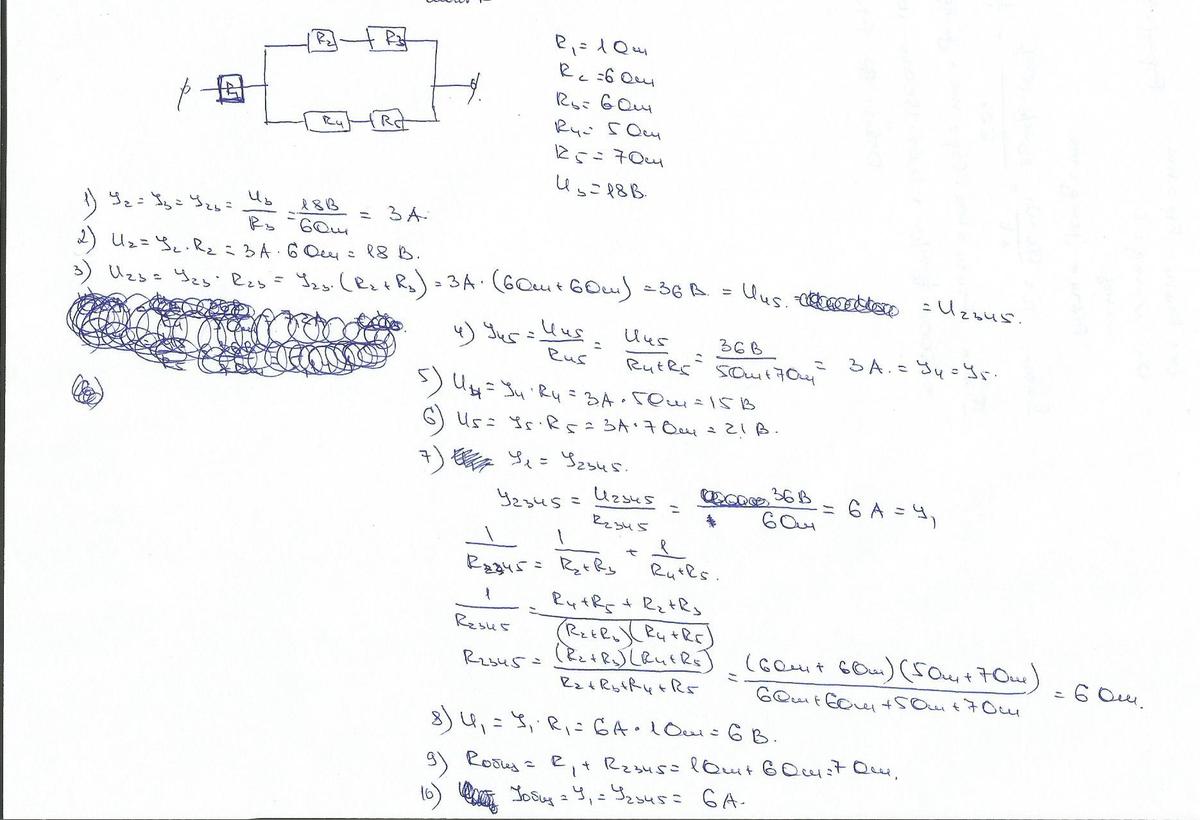 R2 R3
R1
R4 R5
R₁ = 1 Ом
R₂ = 6 Ом
R₃ = 6 Ом
R₄ = 5 Ом
R₅ = 7 Ом
U₃ = 18 В.
1) У₂ = У₃ = У₂₃ = U₃/R₃ = 18В/6Ом = 3 А.
2) U₂ = У₂ · R₂ = 3А · 6 Ом = 18 В.
3) U₂₃ = У₂₃ · R₂₃ = У₂₃ · (R₂ + R₃) = 3А · (6Ом + 6Ом) = 36 В. = U₄₅. = U₂₃₄₅.
4) У₄₅ = U₄₅/R₄₅ = U₄₅/R₄+R₅ = 36В/5Ом+7Ом = 3 А. = У₄ = У₅.
5) U₄ = У₄ · R₄ = 3А · 5Ом = 15 В
6) U₅ = У₅ · R₅ = 3А · 7 Ом = 21 В.
7) У₁ = У₂₃₄₅.
У₂₃₄₅ = U₂₃₄₅/R₂₃₄₅ = 36В/6Ом = 6 А = У₁
1/R₂₃₄₅ = 1/R₂+R₃ + 1/R₄+R₅.
1/R₂₃₄₅ = R₄+R₅ + R₂+R₃/(R₂+R₃)(R₄+R₅)
R₂₃₄₅ = (R₂+R₃)(R₄+R₅)/R₂+R₃+R₄+R₅ = (6Ом + 6Ом)(5Ом+7Ом)/6Ом+6Ом+5Ом+7Ом = 6 Ом.
8) U₁ = У₁ · R₁ = 6А · 1 Ом = 6 В.
9) Rобщ = R₁ + R₂₃₄₅ = 1Ом + 6Ом = 7 Ом.
10) Уобщ = У₁ = У₂₃₄₅ = 6А.